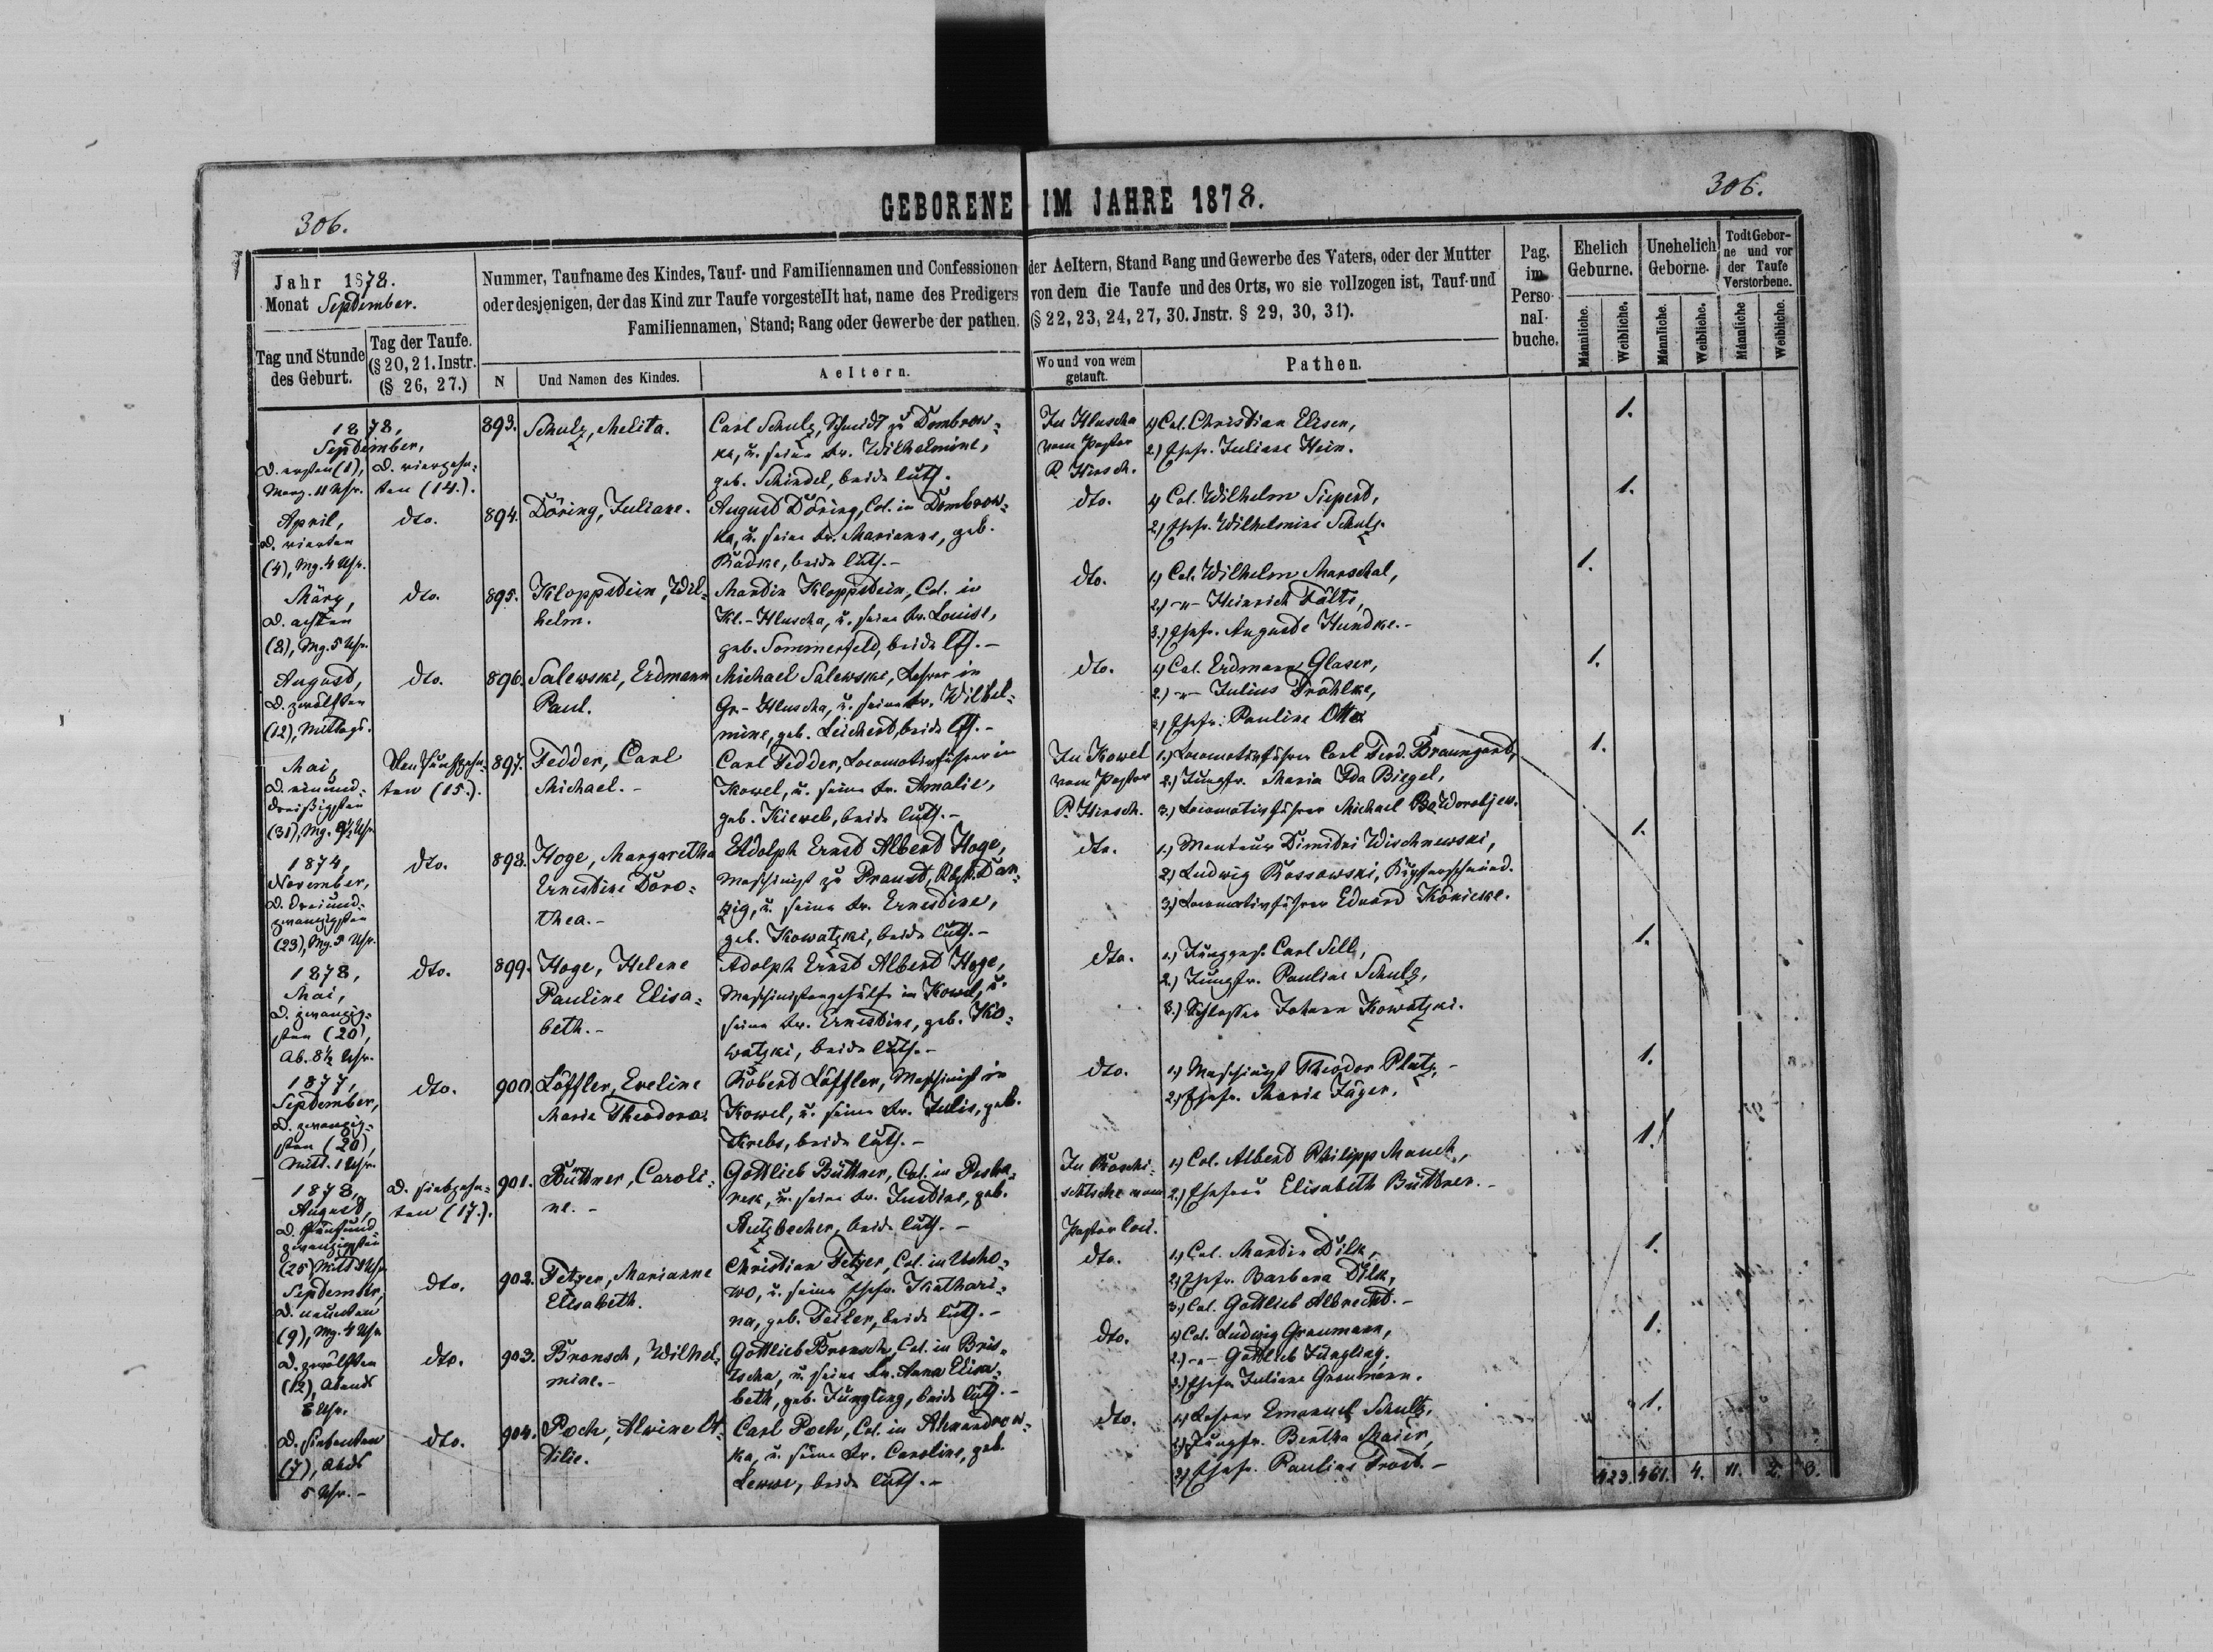 306.
GEBORENE IM JAHRE 1878.
306.
Jahr 1878.
Monat September.
Tag und Stunde
des Geburt.
Tag der Taufe.
(§ 20, 21. Instr.
(§ 26, 27.)
Nummer, Taufname des Kindes, Tauf- und Familiennamen und Confessionen
oder desjenigen, der das Kind zur Taufe vorgestellt hat, name des Predigers
Familiennamen, Stand; Rang oder Gewerbe der pathen.
N
Und Namen des Kindes.
Aeltern.
der Aeltern, Stand Rang und Gewerbe des Vaters, oder der Mutter
von dem die Taufe und des Orts, wo sie vollzogen ist, Tauf-und
(§ 22, 23, 24, 27, 30. Jnstr. § 29, 30, 31).
Wo und von wem
getauft.
Pathen.
Pag.
im
Perso-
nal-
buche.
Ehelich
Geburne.
Unehelich
Geborne.
Todt Gebor-
ne und vor
der Taufe
Verstorbene.
Männliche.
Weibliche.
Männliche.
Weibliche.
Männliche
Weibliche.
1878,
September,
D. ersten (1),
Morg. 11 Uhr.
D. vierzehn-
ten (14.).
893.
Schulz, Melita.
Carl Schulz, Schmidt zu Dombrow-
ka, u. seine Fr. Wilhelmine,
geb. Schindel, beide luth.
In Hluscha
vom Pastor
P. Hirsch.
1) Col. Christian Elsen,
2) Ehefr. Juliane Hein.
1.
April,
D. vierten
(4), Mg. 4 Uhr.
dto.
894.
Döring, Juliane.
August Döring, Col. in Dombrow-
ka, u. seine Fr. Marianne, geb.
Radke, beide luth.-
dto.
1) Col. Wilhelm Siepert,
2) Ehefr. Wilhelmine Schulz.
1.
März,
D. achten
(8), Mg. 5 Uhr.
dto.
895.
Kloppstein, Wil-
helm.
Martin Kloppstein, Col. in
Kl.-Hluscha, u. seine Fr. Louise,
geb. Sommerfeld, beide lth.-
dto.
1) Col. Wilhelm Marschal,
2.) -"- Heinrich Fälts,
3.) Ehefr. Auguste Hundke.-
1.
August,
D. zwölften
(12), Mittags.
dto.
896.
Salewski, Erdmann
Paul.
Michael Salewski, Lehrer in
Gr.-Hluscha, u. seine Fr. Wilhel-
mine, geb. Leichert, beide lth.-
dto.
1) Col. Erdmann Glaser,
2.) -"- Julius Fröhlke,
3) Ehefr. Pauline Otto.
1.
Mai,
D. einund-
dreißigsten
Den fünfzehn-
ten (15.).
897.
Fedder, Carl
Michael.-
Carl Fedder, Locomotivführer in
Kowel, u. seine Fr. Amalie,
geb. Kiewel, beide luth.-
In Kowel
vom Pastor
P. Hirsch.
1.) Locomotivführer Carl Ferd. Braungart,
2.) Jungfr. Maria Ida Biegel,
3.) Locomotivführer Michael Worobjew.
1.
1874,
November,
D. dreiund-
zwanzigsten
(23), Mg. 5 Uhr.
dto.
898.
Hoge, Margaretha
Ernestine Doro-
thea.-
Adolph Ernst Albert Hoge,
Maschinist zu Praust, Dan-
zig, u. seine Fr. Ernestine,
geb. Kowatzki, beide luth.-
dto.
1.) Monteur Dimitri Wischnewski,
2) Ludwig Kossowski,
3.) Locomotivführer Eduard Könicke.
1.
1878,
Mai,
D. zwanzig-
sten (20),
Ab. 8½ Uhr.
dto.
899.
Hoge, Helene
Pauline Elisa-
beth.-
Adolph Ernst Albert Hoge,
Maschinistengehülfe in Kowel, u.
seine Fr. Ernestine, geb. Ko-
watzki, beide luth.-
dto.
1.) Jungges. Carl Sell,
2.) Jungfr. Pauline Schulz,
3.) Schlosser Johann Kowatzki.
1.
1877,
September,
D. zwanzig-
sten (20),
Mitt. 1 Uhr.
dto.
900.
Löffler, Eveline
Maria Theodora.
Robert Löffler, Maschinist in
Kowel, u. seine Fr. Julie, geb.
Krebs, beide luth.-
dto.
1.) Maschinist Theodor Platz,-
2.) Ehefr. Maria Jäger.
1.
1878,
August,
D. fünfund-
zwanzigsten
D. siebzehn-
ten (17.).
901.
Büttner, Caroli-
ne.-
Gottlieb Büttner, Col. in
u. seine Fr. Justine, geb.
Butzbecher, beide luth.-
In Roschi-
schtsche vom
Pastor loci.
1) Col. Albert Philipp Mauch,
2.) Ehefrau Elisabeth Büttner.-
1.
September,
D. neunten
(9), Mg. 4 Uhr
dto.
902.
Fetzer, Marianne
Elisabeth.
Christian Fetzer, Col. in
wo, u. seine Ehefr. Kathari-
na, geb. Feiler, beide luth.-
dto.
1.) Col. Martin Dilk,
2.) Ehefr. Barbara Dilk,
3.) Col. Gottlieb Albrecht.-
1.
D. zwölften
(12), Abends
8 Uhr.
dto.
903.
Bronsch, Wilhel-
mine.-
Gottlieb Bronsch, Col. in Bris-
tscha, u. seine Fr. Anna Elisa-
beth, geb. Jüngling, beide luth.-
dto.
1) Col. Ludwig Graumann,
2.) -"- Gottlieb Jüngling.
3.) Ehefr. Juliane Graumann.
1.
D. siebenten
(7), Abds
5 Uhr.-
dto.
904.
Poch, Alwine Ot-
tilie.
Carl Poch, Col. in
ka, u. seine Fr. Caroline, geb.
beide luth.-
dto.
1) Lehrer Emanuel Schultz,
2) Jungfr. Bertha Maier,
3) Ehefr. Pauline Trost.-
1.
423. 461. 4. 11. 2. 3.